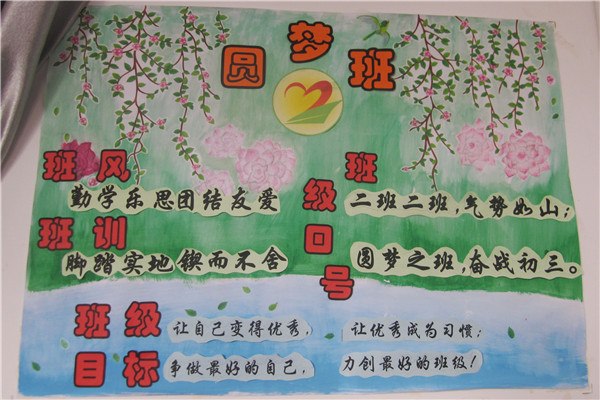 圆梦班
班风
勤学乐思团结友爱
班训
脚踏实地锲而不舍
班级口号
二班二班,气势如山;
圆梦之班,奋战初三。
班级目标
让自己变得优秀,让优秀成为习惯;
争做最好的自己,力创最好的班级!